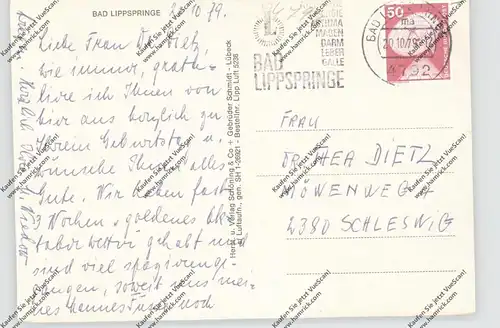 BAD LIPPSPRINGE
20.10.79.
Liebe Frau Dietz,
wie immer, gratu-
liere ich Ihnen von
hier aus herzlich zu
Ihrem Geburtstag u.
wünsche Ihnen alles
Gute. Wir haben fast
3 Wochen goldenes Ok-
toberwetter gehabt und
sind viel spazieren ge-
gangen, soweit uns mei-
nes Mannes Fuss noch
Horst u. Verlag Schöning & Co + Gebrüder Schmidt · Lübeck
Luftaufn., gen. SH 1-292/1 Bestellnr. Lipp Luft 5228
ASTHMA
MAGEN
DARM
LEBER
GALLE
BAD
LIPPSPRINGE
BAD
ma
20.10.79
4792
50
FRAU
DIETZ
MÖWENWEG
2380 SCHLESWIG
Kaufen Sie jetzt VueScan!
www.hamrick.com